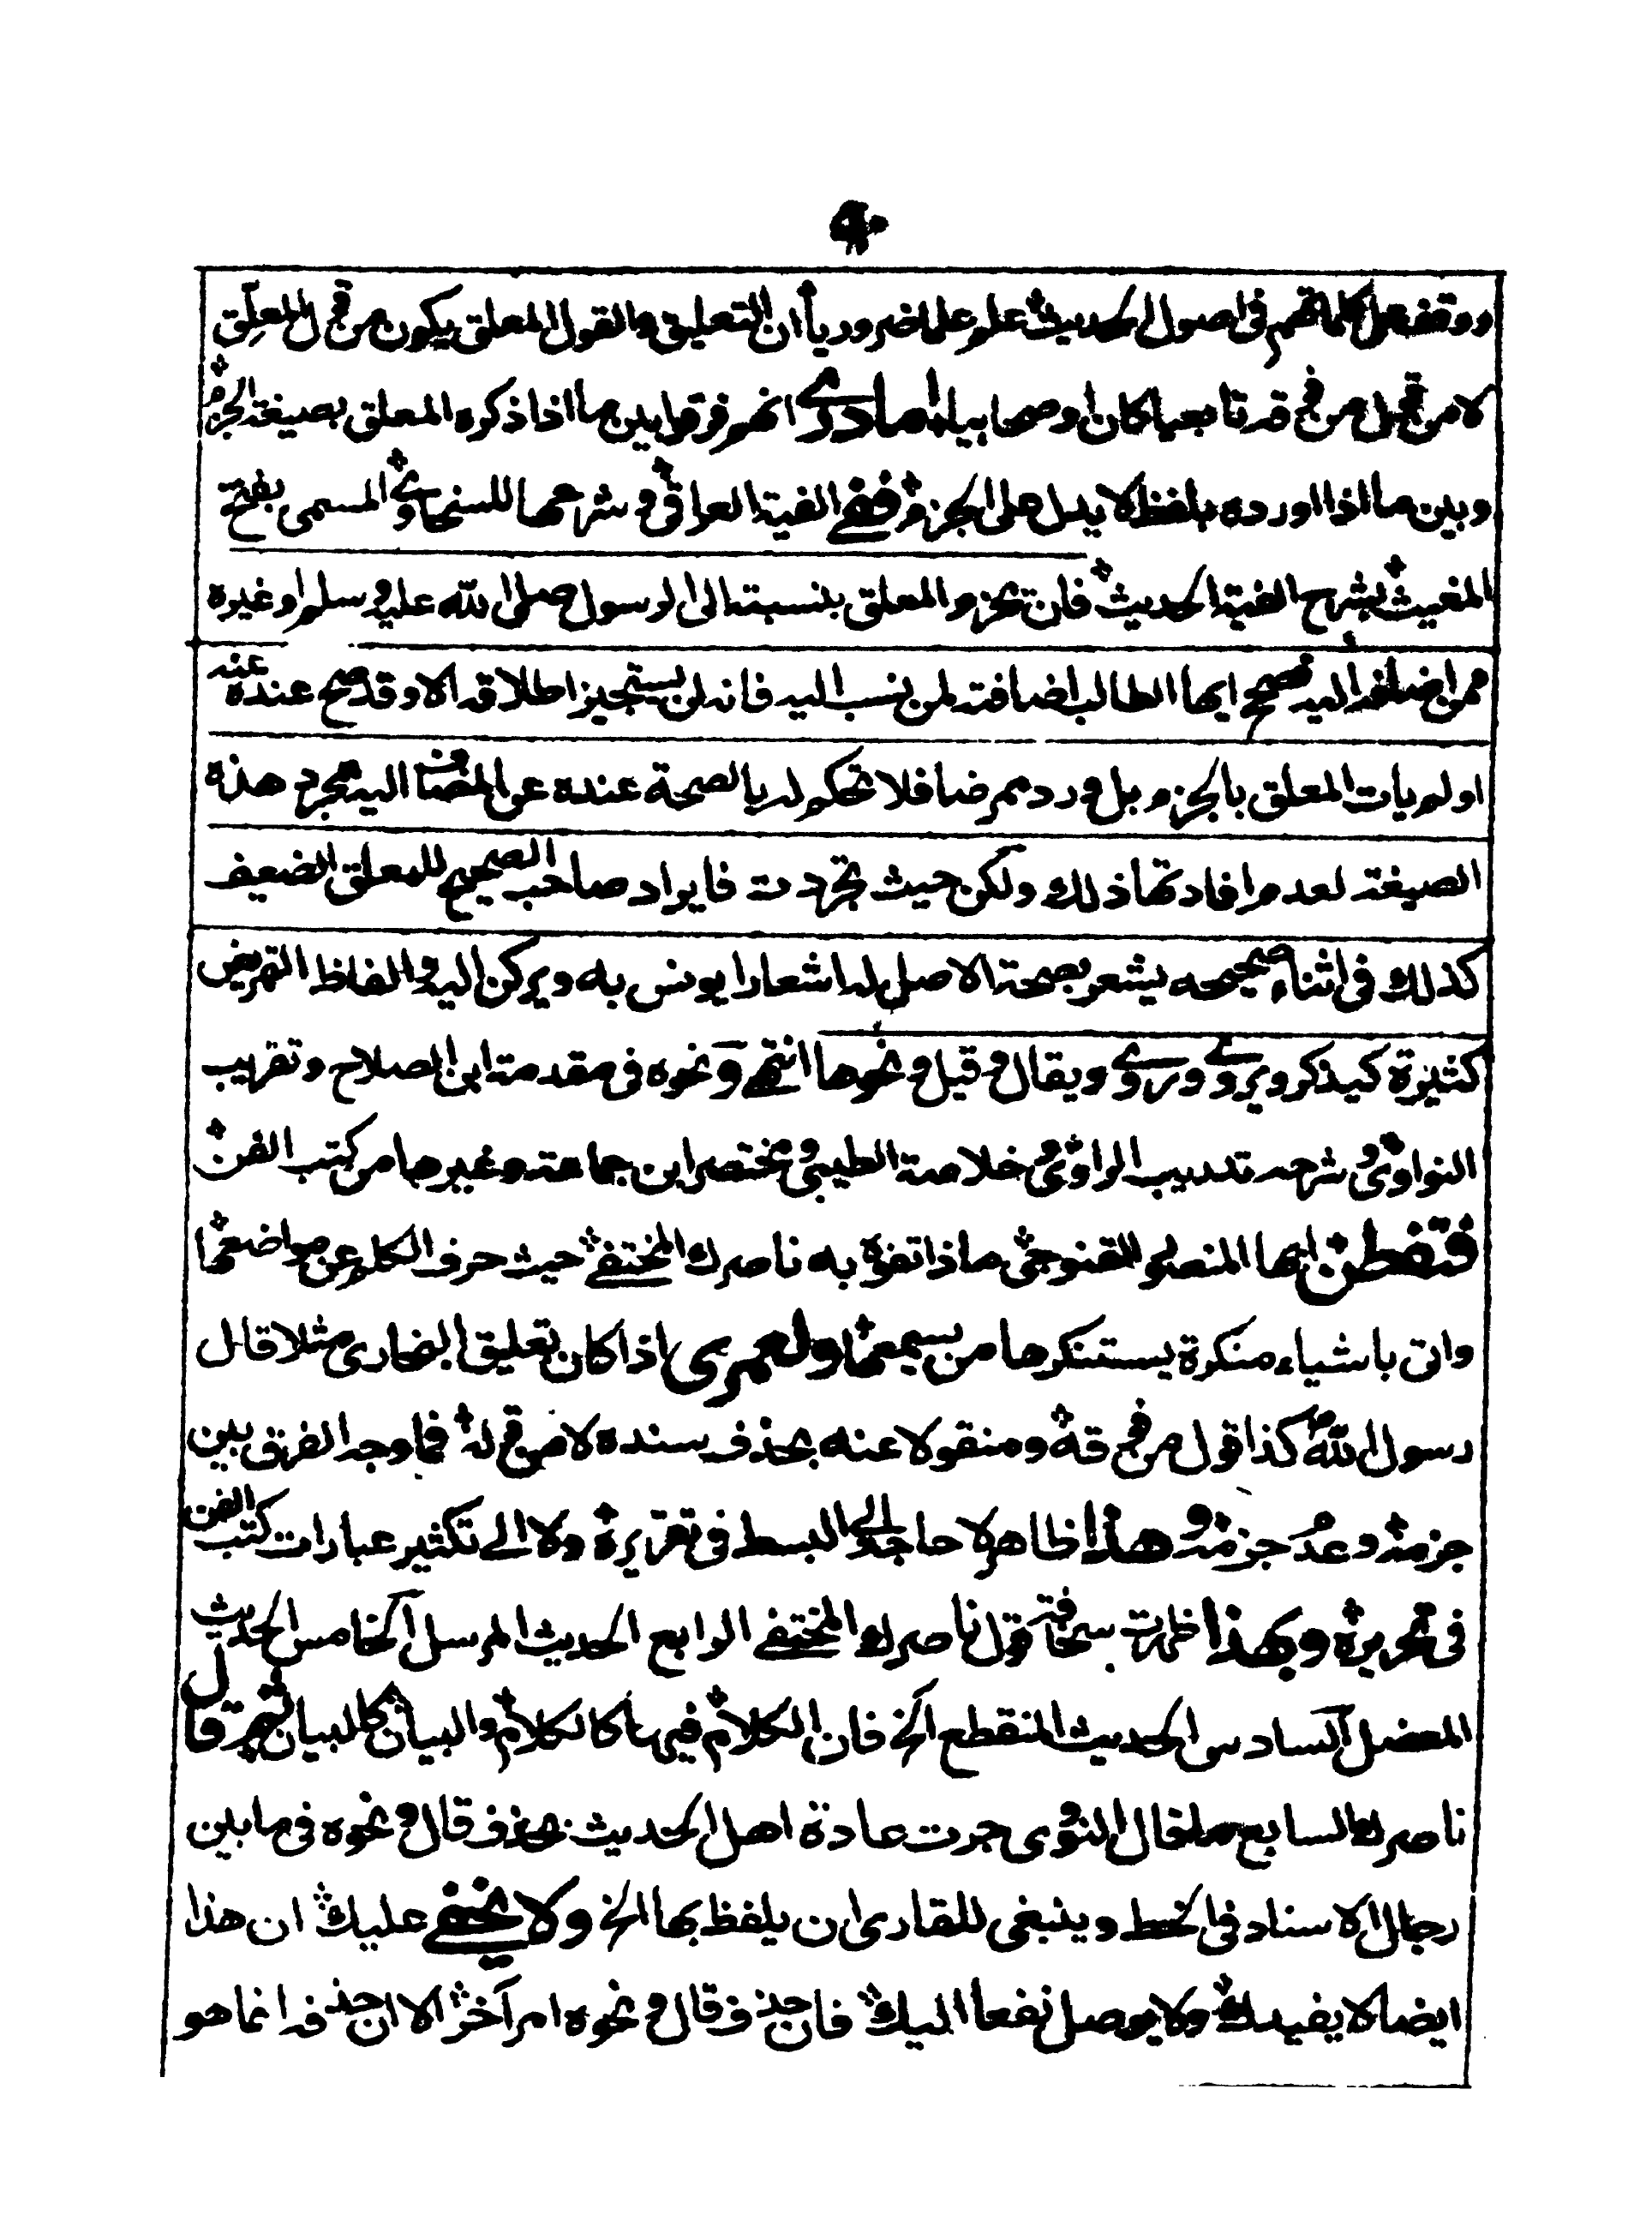 ووقف على كلماتهم فى اصول الحديث علم علما ضروريا ان التعليق والقول المعلق يكون من المعلق
لا من تابعيا كان او صحابيا اما درى انهم فرقوا بين ما اذا ذكره المعلق بصيغة الجزم
وبين ما اذا اورده بلفظ لا يدل على الجزم ففى الفية العراقى و شرحها للسخاوى المسمى بفتح
المغيث بشرح الفية الحديث فان تجزم المعلق بنسبته الى الرسول صلى الله عليه وسلم او غيره
ممن اضافه اليه فصحح ايها الطالب اضافته لمن نسب اليه فانه لن يستجيز اطلاقه الا وقد صح عنده عنه
او لم يات المعلق بالجزم بل ورد ممرضا فلا تحكم له بالصحة عنده عن المضاف اليه بمجرد هذه
الصيغة لعدم افادتها ذلك ولكن حيث تجردت فايراد صاحب الصحيح للمعلق الضعيف
كذلك فى اثناء صحيحه يشعر بصحة الاصل له اشعارا يونس به ويركن اليه والفاظ التمريض
كثيرة كيذكر ويروى وروى ويقال وقيل ونحوها انتهى ونحوه فى مقدمة ابن الصلاح وتقريب
النواوى و شرحه تدريب الراوى و خلاصة الطيبى و مختصر ابن جماعة وغيرها من كتب الفن
فتفطن ايها المنصور القنوجى ماذا تفوه به ناصرك المختفى حيث حرف الكلم عن مواضعها
واتى باشياء منكرة يستنكرها من يسمعها ولعمرى اذا كان تعليق البخارى مثلا قال
رسول الله كذا قول من ومنقولا عنه بحذف سنده لا من فما وجه الفرق بين
جزمه وعدم جزمه وهذا ظاهر لا حاجة الى البسط فى تقريره ولا الى تكثير عبارات كتب الفن
فى تحريره وبهذا ظهرت سخافة قول ناصرك المختفى الرابع الحديث المرسل الخ الخامس الحديث
المعضل الخ السادس الحديث المنقطع الخ فان الكلام فيها كالكلام والبيان كالبيان ثم قال
ناصرك السابع ما قال النووى جرت عادة اهل الحديث بحذف قال ونحوه فى ما بين
رجال الاسناد فى الخط وينبغى للقارى ان يلفظ بها الخ ولا يخفى عليك ان هذا
ايضا لا يفيدك ولا يوصل نفعا اليك فان حذف قال ونحوه امر آخر الا ان حذفه انما هو